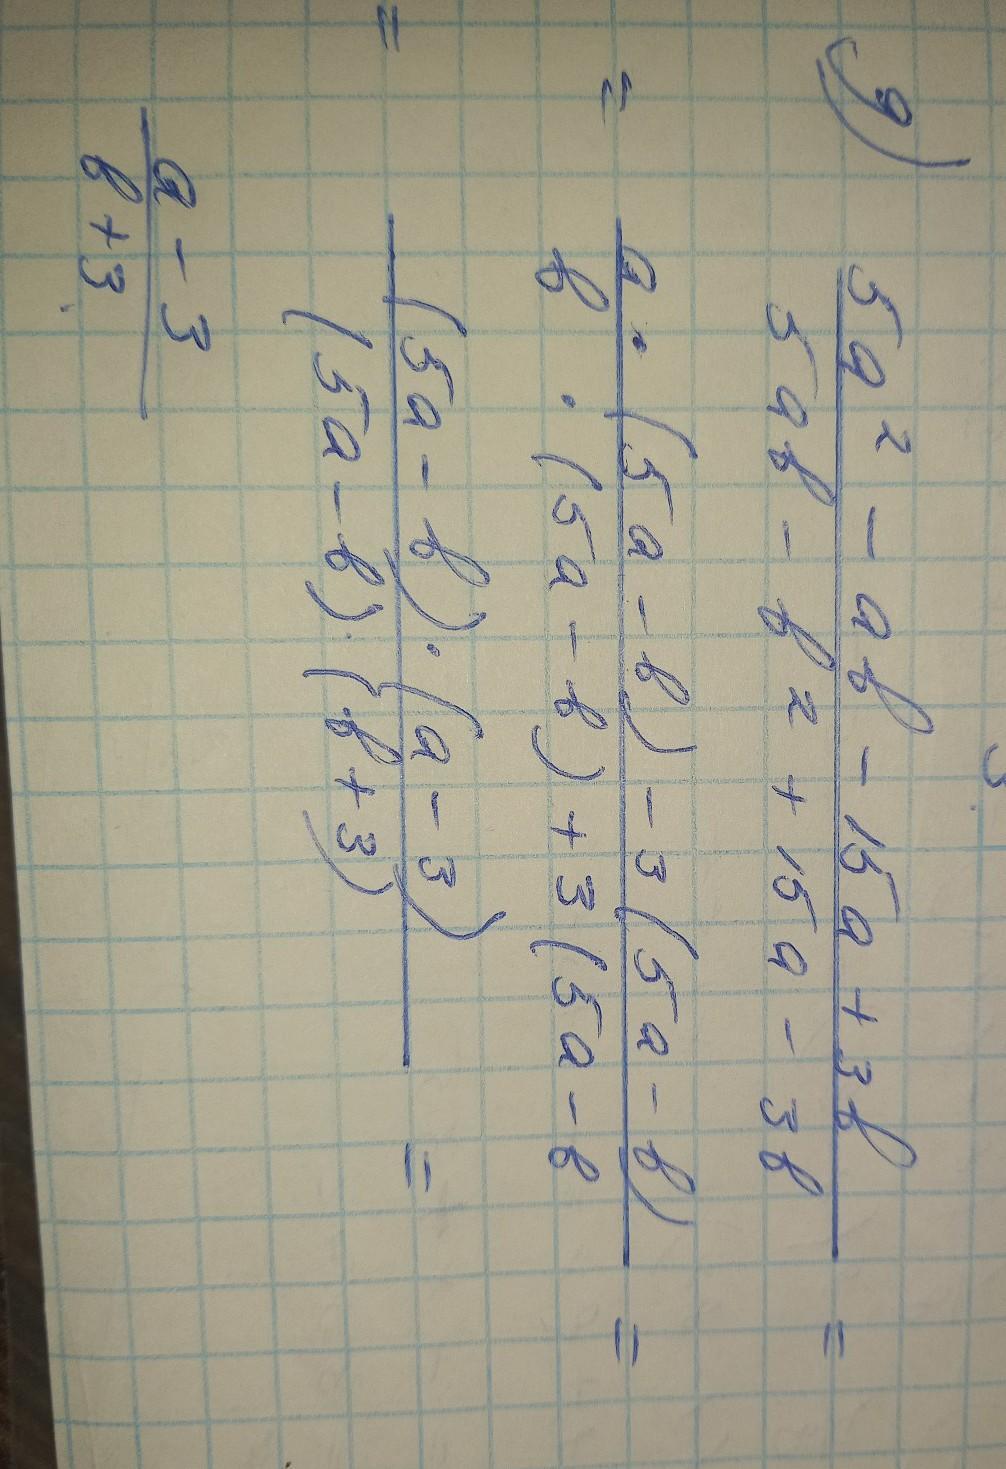 9)
5a² - ab - 15a + 3b
5ab - b² + 15a - 3b =
= a · (5a - b) - 3(5a - b)
b · (5a - b) + 3(5a - b =
= (5a - b) · (a - 3)
(5a - b) · (b + 3) =
a - 3
b + 3